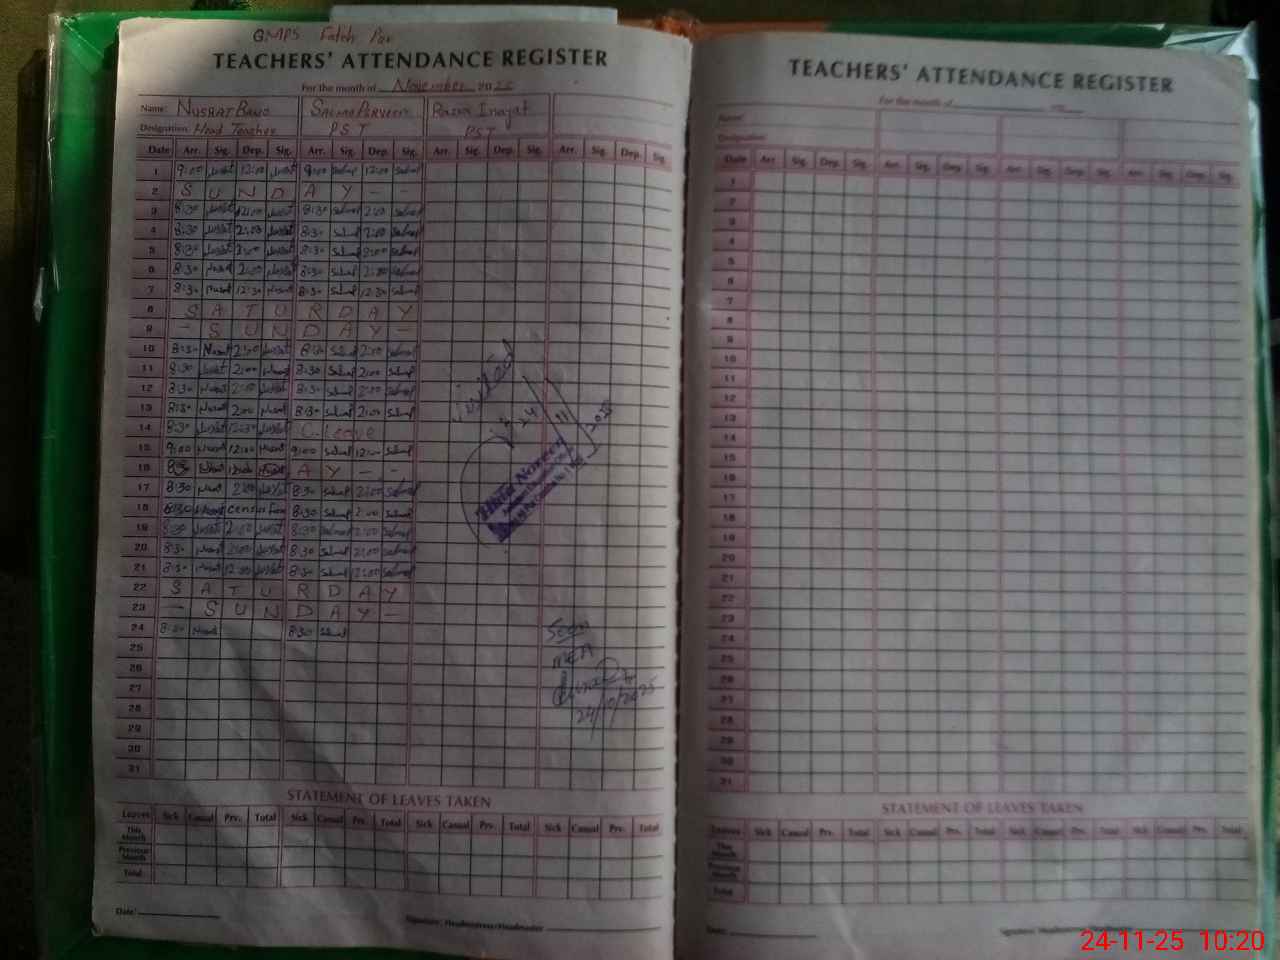 GMPS Fateh Pur
TEACHERS' ATTENDANCE REGISTER
For the month of November 2025
Name: NUSRAT BANO SALMA PARVEEN Razia Inayat
Designation: Head Teacher PST PST
Date Arr. Sig. Dep. Sig. Arr. Sig. Dep. Sig. Arr. Sig. Dep. Sig. Arr. Sig. Dep. Sig.
1 9:00 Nusrat 12:00 Nusrat 9:00 Salma 12:00 Salma
2 S U N D A Y - -
3 8:30 Nusrat 2:00 Nusrat 8:30 Salma 2:00 Salma
4 8:30 Nusrat 2:00 Nusrat 8:30 Salma 2:00 Salma
5 8:30 Nusrat 2:00 Nusrat 8:30 Salma 2:00 Salma
6 8:30 Nusrat 2:00 Nusrat 8:30 Salma 2:00 Salma
7 8:30 Nusrat 12:30 Nusrat 8:30 Salma 12:30 Salma
8 S A T U R D A Y
9 - S U N D A Y -
10 8:30 Nusrat 2:00 Nusrat 8:30 Salma 2:00 Salma
11 8:30 Nusrat 2:00 Nusrat 8:30 Salma 2:00 Salma
12 8:30 Nusrat 2:00 Nusrat 8:30 Salma 2:00 Salma
13 8:30 Nusrat 2:00 Nusrat 8:30 Salma 2:00 Salma
14 8:30 Nusrat 12:30 Nusrat C. Leave
15 9:00 Nusrat 12:00 Nusrat 9:00 Salma 12:00 Salma
16 A Y - -
17 8:30 Nusrat 2:00 Nusrat 8:30 Salma 2:00 Salma
18 8:30 Nusrat 8:30 Salma 2:00 Salma
19 8:30 Nusrat 2:00 Nusrat 8:30 Salma 2:00 Salma
20 8:30 Nusrat 2:00 Nusrat 8:30 Salma 2:00 Salma
21 8:30 Nusrat 12:00 Nusrat 8:30 Salma 12:00 Salma
22 S A T U R D A Y
23 - S U N D A Y -
24 8:30 Nusrat 8:30 Salma
25
26
27
28
29
30
31
Visited
24
11
2025
Seen
MEA
24/10/2025
STATEMENT OF LEAVES TAKEN
Leaves Sick Casual Prv. Total Sick Casual Prv. Total Sick Casual Prv. Total Sick Casual Prv. Total
This Month
Previous Month
Total
Date:
Signature: Headmistress/Headmaster
TEACHERS' ATTENDANCE REGISTER
For the month of
Name:
Designation:
Date Arr. Sig. Dep. Sig. Arr. Sig. Dep. Sig. Arr. Sig. Dep. Sig. Arr. Sig. Dep. Sig.
1
2
3
4
5
6
7
8
9
10
11
12
13
14
15
16
17
18
19
20
21
22
23
24
25
26
27
28
29
30
31
STATEMENT OF LEAVES TAKEN
Leaves Sick Casual Prv. Total Sick Casual Prv. Total Sick Casual Prv. Total Sick Casual Prv. Total
This Month
Previous Month
Total
Date:
24-11-25 10:20